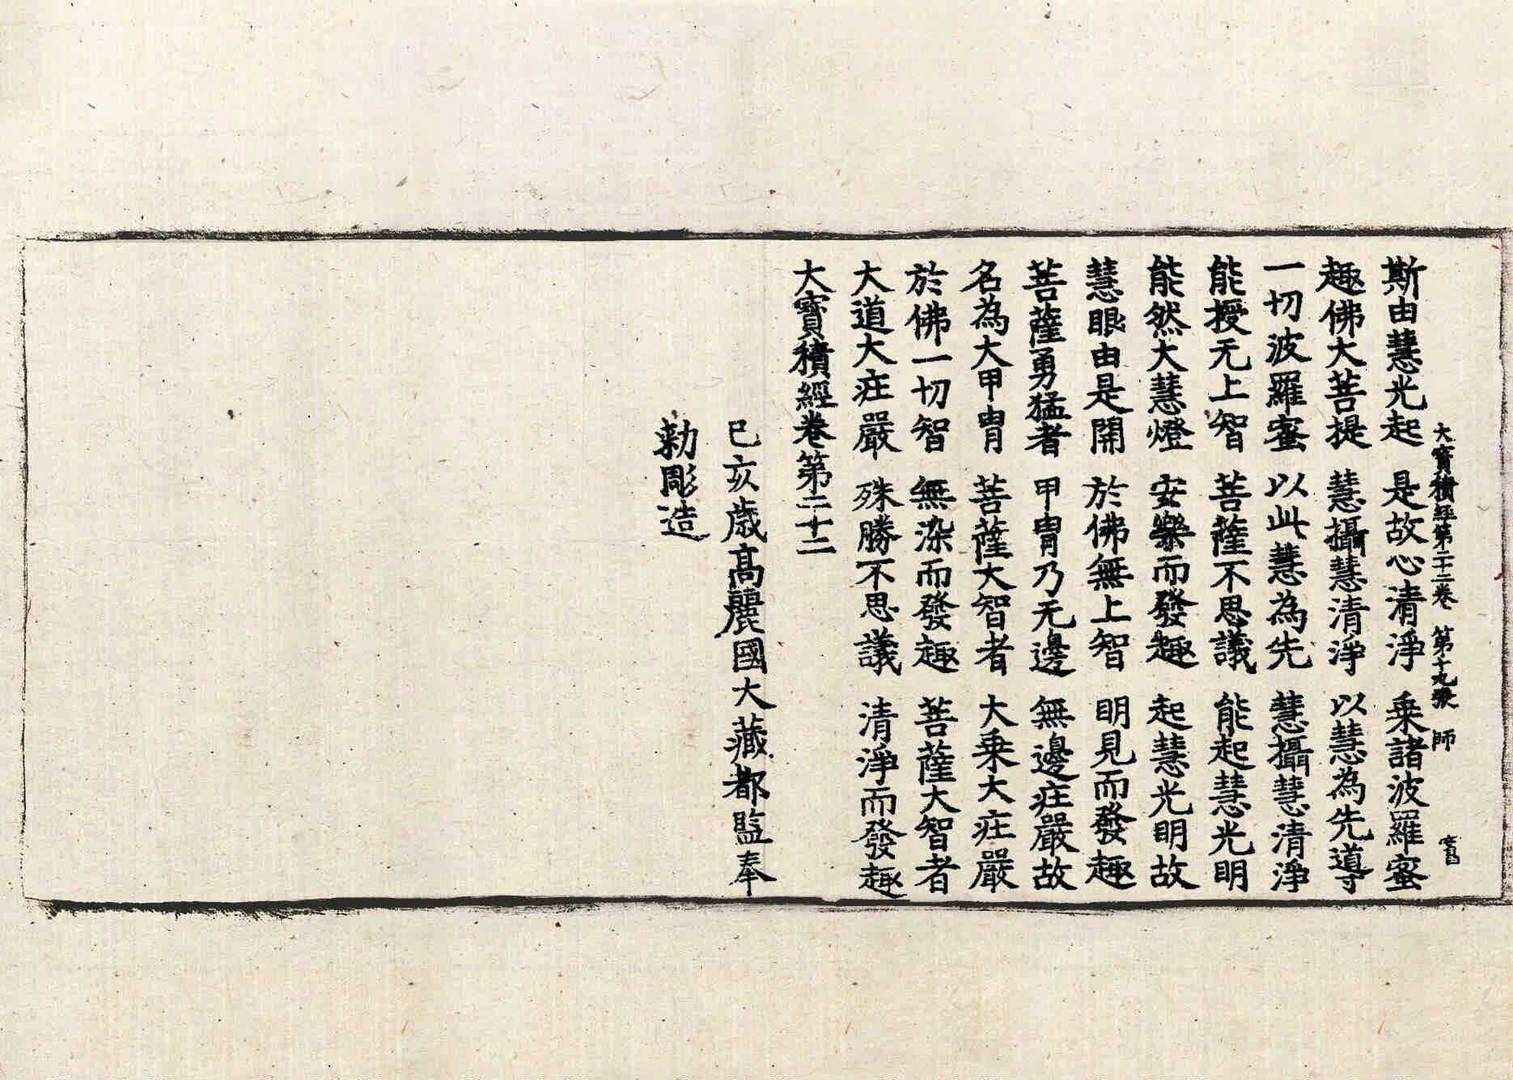 大寶積經第二十二卷 第十九張 師
斯由慧光起 是故心清淨 乘諸波羅蜜
趣佛大菩提 慧攝慧清淨 以慧為先導
一切波羅蜜 以此慧為先 慧攝慧清淨
能授无上智 菩薩不思議 能起慧光明
能然大慧燈 安樂而發趣 起慧光明故
慧眼由是開 於佛無上智 明見而發趣
菩薩勇猛者 甲冑乃无邊 無邊庄嚴故
名為大甲冑 菩薩大智者 大乘大庄嚴
於佛一切智 無染而發趣 菩薩大智者
大道大庄嚴 殊勝不思議 清淨而發趣
大寶積經卷第二十二
己亥歲高麗國大藏都監奉
勅彫造